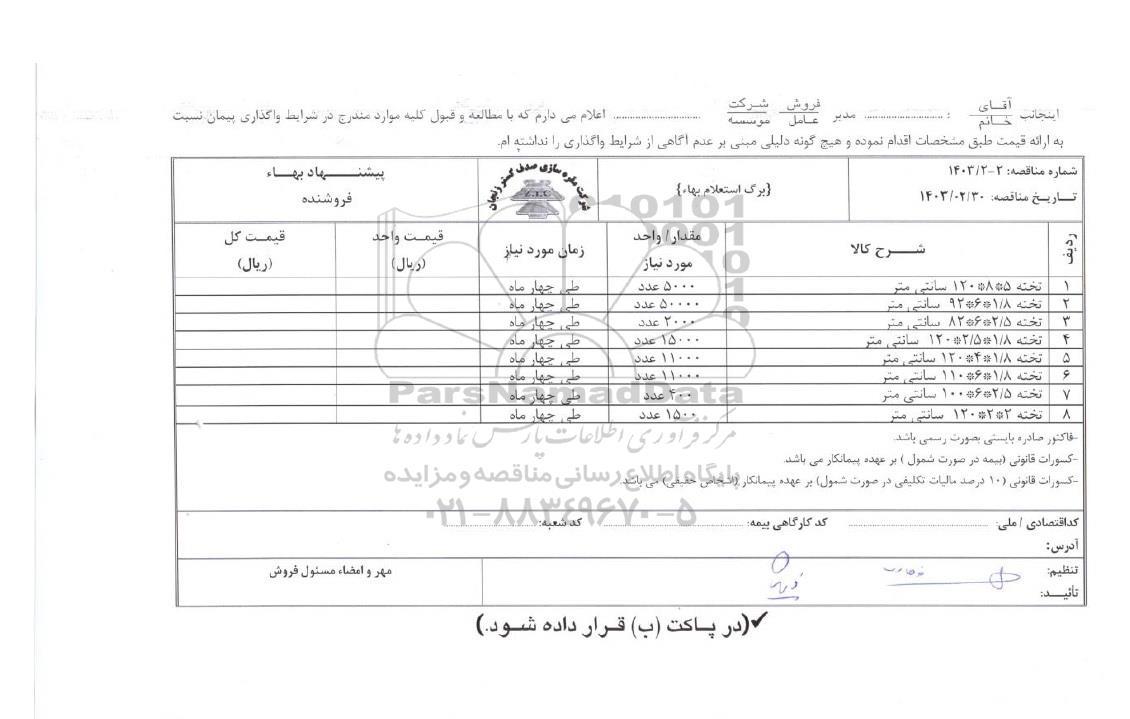 اینجانب آقای / خانم : .......................... مدیر فروش / عامل شرکت / موسسه .......................... اعلام می دارم که با مطالعه و قبول کلیه موارد مندرج در شرایط واگذاری پیمان نسبت
به ارائه قیمت طبق مشخصات اقدام نموده و هیچ گونه دلیلی مبنی بر عدم آگاهی از شرایط واگذاری را نداشته ام.
شماره مناقصه: ۲-۱۴۰۳/۲
تاریخ مناقصه: ۱۴۰۳/۰۲/۳۰
{برگ استعلام بهاء}
شرکت مقره سازی صدف گستر زنجان
Z.I.C
پیشنهاد بهاء
فروشنده
ردیف شرح کالا مقدار/ واحد مورد نیاز زمان مورد نیاز قیمت واحد (ریال) قیمت کل (ریال)
۱ تخته ۵*۸*۱۲۰ سانتی متر ۵۰۰۰ عدد طی چهار ماه
۲ تخته ۱/۸*۶*۹۲ سانتی متر ۵۰۰۰۰ عدد طی چهار ماه
۳ تخته ۲/۵*۶*۸۲ سانتی متر ۲۰۰۰ عدد طی چهار ماه
۴ تخته ۱/۸*۲/۵*۱۲۰ سانتی متر ۱۵۰۰۰ عدد طی چهار ماه
۵ تخته ۱/۸*۴*۱۲۰ سانتی متر ۱۱۰۰۰ عدد طی چهار ماه
۶ تخته ۱/۸*۶*۱۱۰ سانتی متر ۱۱۰۰۰ عدد طی چهار ماه
۷ تخته ۲/۵*۶*۱۰۰ سانتی متر ۴۰۰ عدد طی چهار ماه
۸ تخته ۲*۲*۱۲۰ سانتی متر ۱۵۰۰ عدد طی چهار ماه
ParsNamadData
مرکز فرآوری اطلاعات پارس نماد داده ها
پایگاه اطلاع رسانی مناقصه و مزایده
۰۲۱-۸۸۳۴۹۶۷۰-۵
-فاکتور صادره بایستی بصورت رسمی باشد.
-کسورات قانونی (بیمه در صورت شمول ) بر عهده پیمانکار می باشد.
-کسورات قانونی (۱۰ درصد مالیات تکلیفی در صورت شمول) بر عهده پیمانکار (اشخاص حقیقی) می باشد.
کداقتصادی / ملی: .......................... کد کارگاهی بیمه: .......................... کد شعبه: ..........................
آدرس:
تنظیم:
تائید:
مهر و امضاء مسئول فروش
✓(در پاکت (ب) قرار داده شود.)